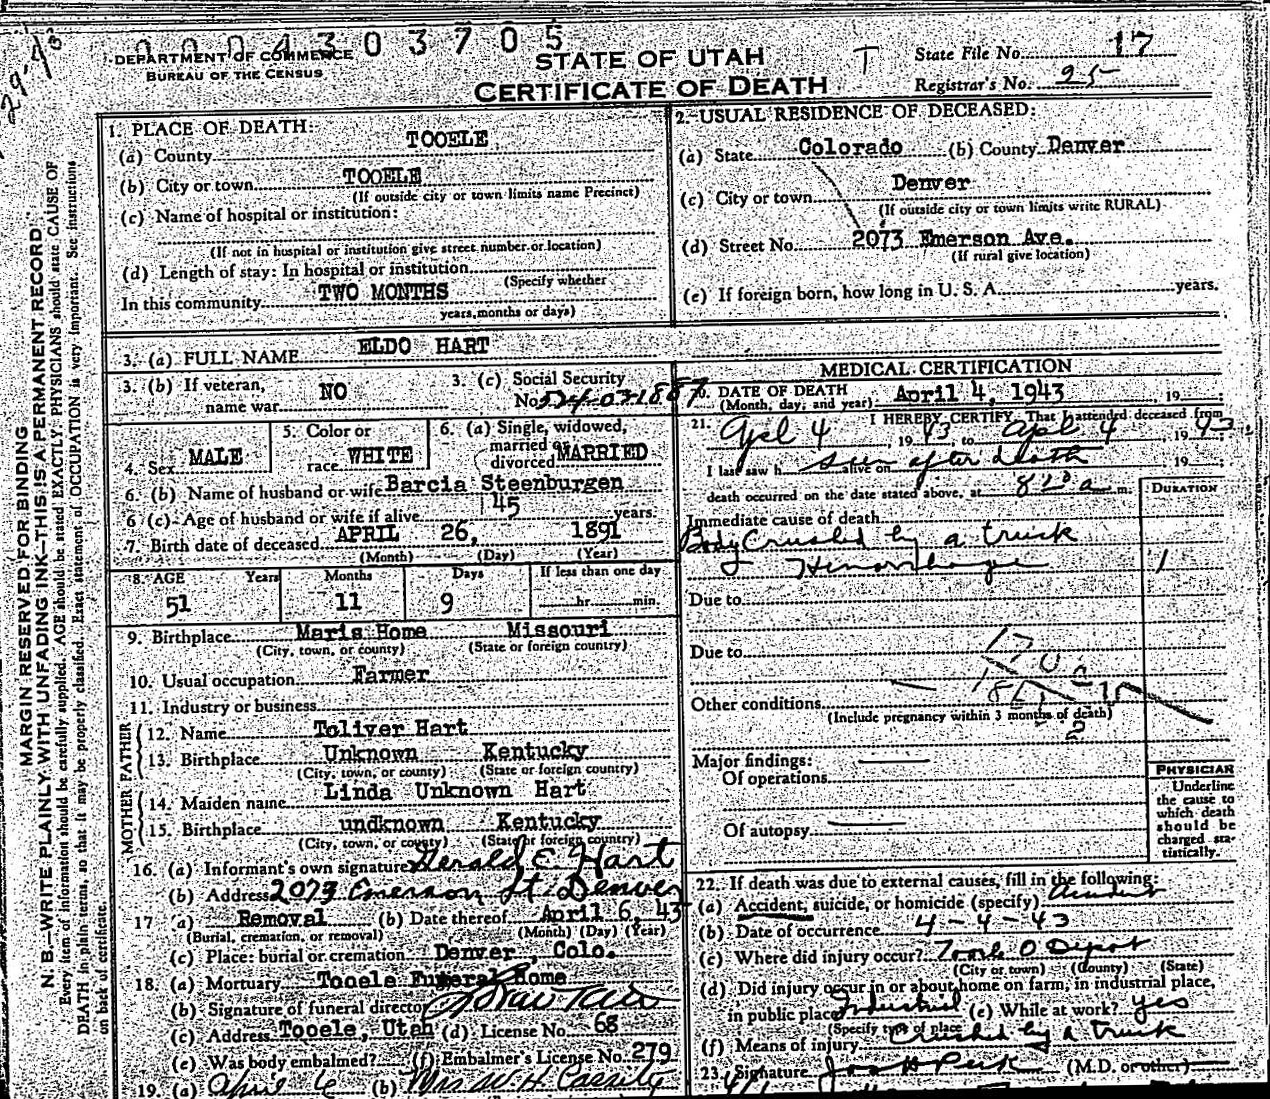 0004303705
29
DEPARTMENT OF COMMERCE
BUREAU OF THE CENSUS
STATE OF UTAH
CERTIFICATE OF DEATH
T
State File No. 17
Registrar's No. 95
MARGIN RESERVED FOR BINDING
N. B.—WRITE PLAINLY WITH UNFADING INK—THIS IS A PERMANENT RECORD
Every item of information should be carefully supplied. AGE should be stated EXACTLY. PHYSICIANS should state CAUSE OF
DEATH in plain terms, so that it may be properly classified. Exact statement of OCCUPATION is very important. See instructions
on back of certificate.
1. PLACE OF DEATH:
(a) County TOOELE
(b) City or town TOOELE
(If outside city or town limits name Precinct)
(c) Name of hospital or institution:
(If not in hospital or institution give street number or location)
(d) Length of stay: In hospital or institution
(Specify whether
In this community TWO MONTHS
years, months or days)
2. USUAL RESIDENCE OF DECEASED:
(a) State Colorado (b) County Denver
(c) City or town Denver
(If outside city or town limits write RURAL)
(d) Street No. 2073 Emerson Ave.
(If rural give location)
(e) If foreign born, how long in U. S. A. years.
3. (a) FULL NAME ELDO HART
3. (b) If veteran, name war NO
3. (c) Social Security No. 524-03-1887
4. Sex MALE
5. Color or race WHITE
6. (a) Single, widowed, married or divorced MARRIED
6. (b) Name of husband or wife Barcia Steenburgen
6 (c) Age of husband or wife if alive 45 years.
7. Birth date of deceased APRIL 26, 1891
(Month) (Day) (Year)
8. AGE Years Months Days If less than one day
51 11 9 hr. min.
9. Birthplace Maris Home Missouri
(City, town, or county) (State or foreign country)
10. Usual occupation Farmer
11. Industry or business
FATHER
12. Name Toliver Hart
13. Birthplace Unknown Kentucky
(City, town, or county) (State or foreign country)
MOTHER
14. Maiden name Linda Unknown Hart
15. Birthplace undknown Kentucky
(City, town, or county) (State or foreign country)
16. (a) Informant's own signature Gerald E. Hart
(b) Address 2073 Emerson St. Denver
17 (a) Removal (b) Date thereof April 6, 43
(Burial, cremation, or removal) (Month) (Day) (Year)
(c) Place: burial or cremation Denver, Colo.
18. (a) Mortuary Tooele Funeral Home
(b) Signature of funeral director
(c) Address Tooele, Utah (d) License No. 68
(e) Was body embalmed? (f) Embalmer's License No. 279
19. (a) April 6 (b) Mrs W. H. Cassity
MEDICAL CERTIFICATION
20. DATE OF DEATH April 4, 1943 19
(Month, day, and year)
21. I HEREBY CERTIFY, That I attended deceased from
Apl 4, 1943, to Apl 4, 1943
I last saw h seen alive on after death, 19
death occurred on the date stated above, at 820 a m.
DURATION
Immediate cause of death
Body Crushed by a truck
& Hemorrhage 1
Due to
Due to
170
Other conditions
(Include pregnancy within 3 months of death)
Major findings:
Of operations
Of autopsy
PHYSICIAN
Underline
the cause to
which death
should be
charged sta-
tistically.
22. If death was due to external causes, fill in the following:
(a) Accident, suicide, or homicide (specify) Accident
(b) Date of occurrence 4-4-43
(c) Where did injury occur? Tooele O Depot
(City or town) (County) (State)
(d) Did injury occur in or about home on farm, in industrial place,
in public place Industrial (e) While at work? yes
(Specify type of place
(f) Means of injury Crushed by a truck
23. Signature Jos H Peck (M.D. or other)